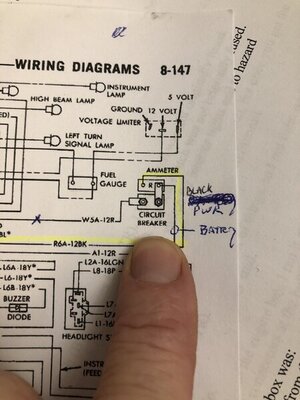 WIRING DIAGRAMS 8-147
used.
to hazard
INSTRUMENT
LAMP
5 VOLT
HIGH BEAM LAMP
GROUND 12 VOLT
VOLTAGE LIMITER
LEFT TURN
SIGNAL LAMP
FUEL
GAUGE
AMMETER
R
BLACK
PWR
W5A-12R
CIRCUIT
BREAKER
BATRY
BL*
R6A-12BK
A1-12R
L6A-18Y*
L2A-16LGN
L6-18Y*
L8-18P
L6B-18Y*
BUZZER
DIODE
L7
L1-16
HEADLIGHT S
INSTR
(FEED
box was: